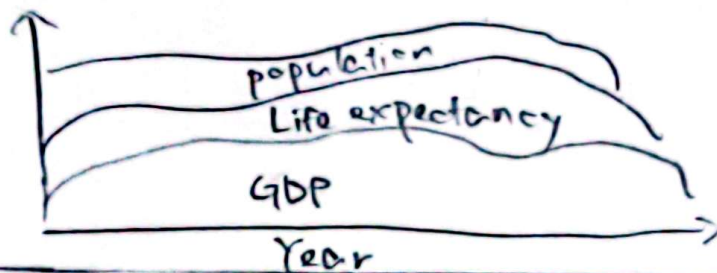 population
Life expectancy
GDP
Year